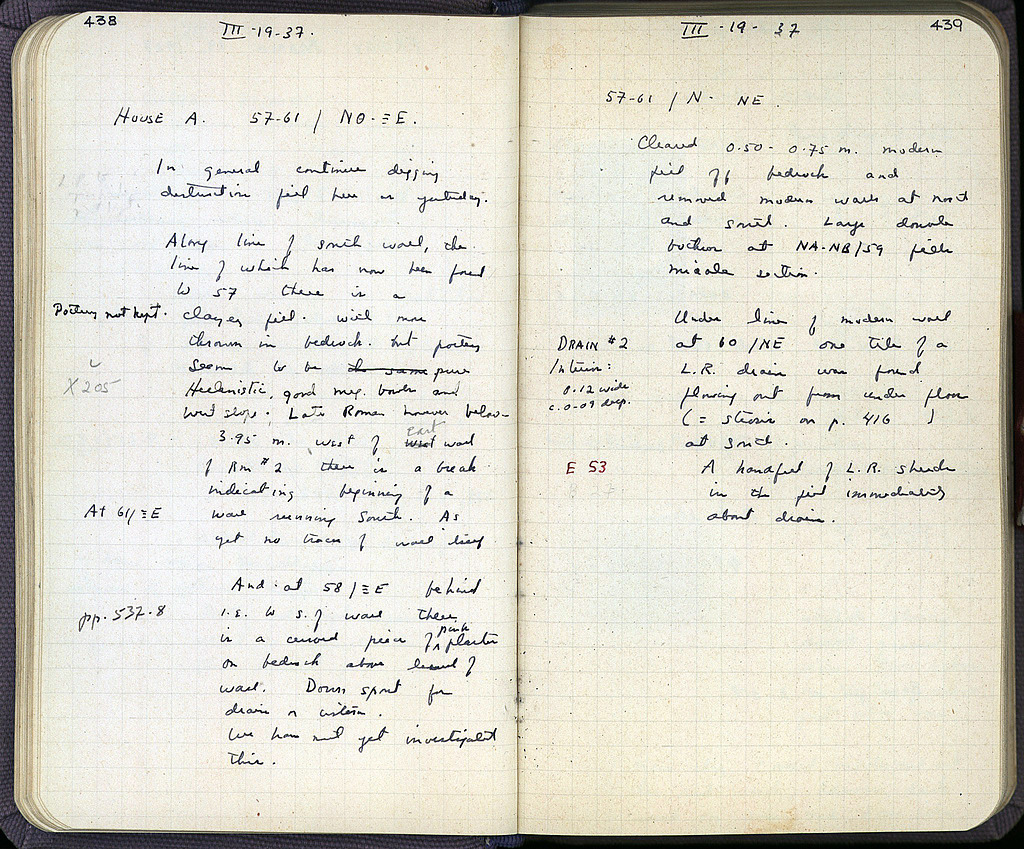 438
III-19-37.
HOUSE A. 57-61 / NO-ΞE.
In general continue digging
destruction fill here as yesterday.
Along line of south wall, the
line of which has now been found
to 57 there is a
Pottery not kept.
clayey fill. with more
thrown in bedrock. but pottery
seems to be the same pure
X 205
Hellenistic, good meg. bowls and
. Late Roman however below-
3.95 m. west of west east wall
of Rm #2 there is a break
indicating beginning of a
At 61/ΞE
wall running South. As
yet no traces of wall itself
And at 58/ΞE behind
pp. 537-8
i.e. to S. of wall there
is a curved piece of pink plaster
on bedrock above level of
wall. Down spout for
drain or cistern.
We have not yet investigated
this.
439
III-19-37
57-61 / N- NE.
Cleared 0.50-0.75 m. modern
fill off bedrock and
removed modern walls at north
and south. Large double
bothros at NA-NB/59 fills
middle section.
Under line of modern wall
DRAIN #2
at 60/NE one tile of a
Interior:
L.R. drain was found
0.12 wide
c. 0.09 deep.
flowing out from under floor
(= on p. 416 )
at south.
E 53
A handful of L.R. sherds
in the fill immediately
about drain.